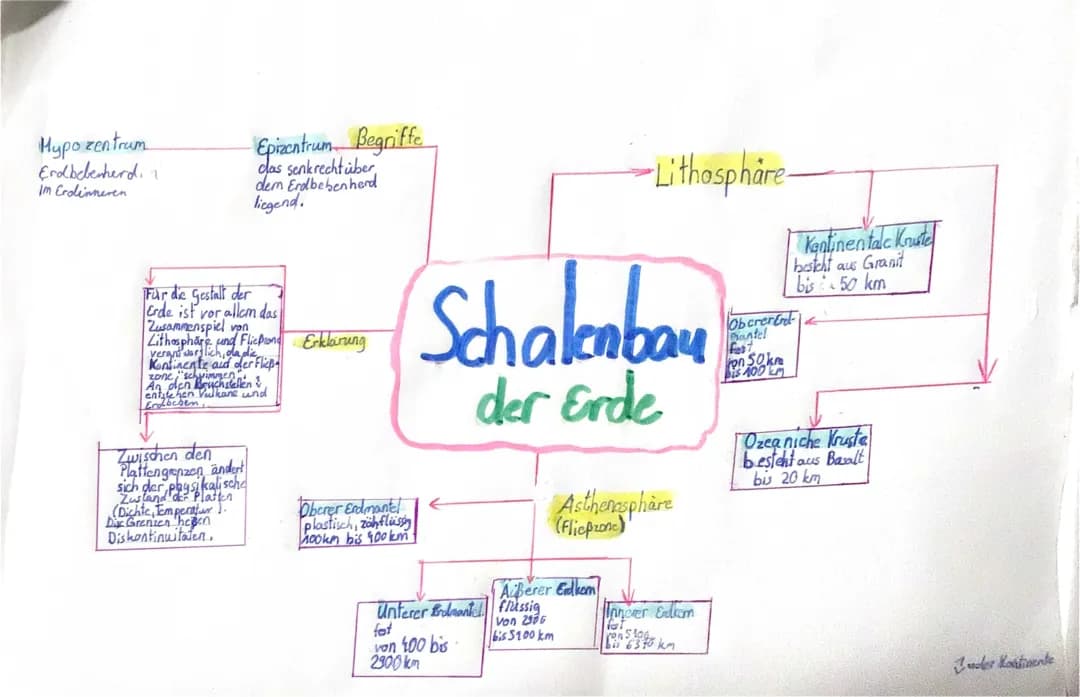 Hypozentrum
Erdbebenherd.
im Erdinneren
Epizentrum
das senkrecht über
dem Erdbebenherd
liegend.
Begriffe
Lithosphäre
Kontinentale Kruste
besteht aus Granit
bis 50 km
Oberer Erd-
mantel
fest
von 50km
bis 100 km
Ozeaniche Kruste
besteht aus Basalt
bis 20 km
Schalenbau
der Erde
Erklärung
Für die Gestalt der
Erde ist vor allem das
Zusammenspiel von
Lithosphäre und Fließzone
verantworlich, da die
Kontinente auf der Fließ-
zone "schwimmen".
An den Bruchstellen
entstehen Vulkane und
Erdbeben.
Zwischen den
Plattengrenzen ändert
sich der physikalische
Zustand der Platten
(Dichte, Temperatur).
Die Grenzen heßen
Diskontinuitäten.
Asthenosphäre
(Fließzone)
Oberer Erdmantel
plastisch, zähflüssig
100km bis 400km
Unterer Erdmantel
fest
von 400 bis
2900 km
Äußerer Erdkern
flüssig
von 2900
bis 5100 km
Innerer Erdkern
fest
von 5100
bis 6370 km
der Kontinente